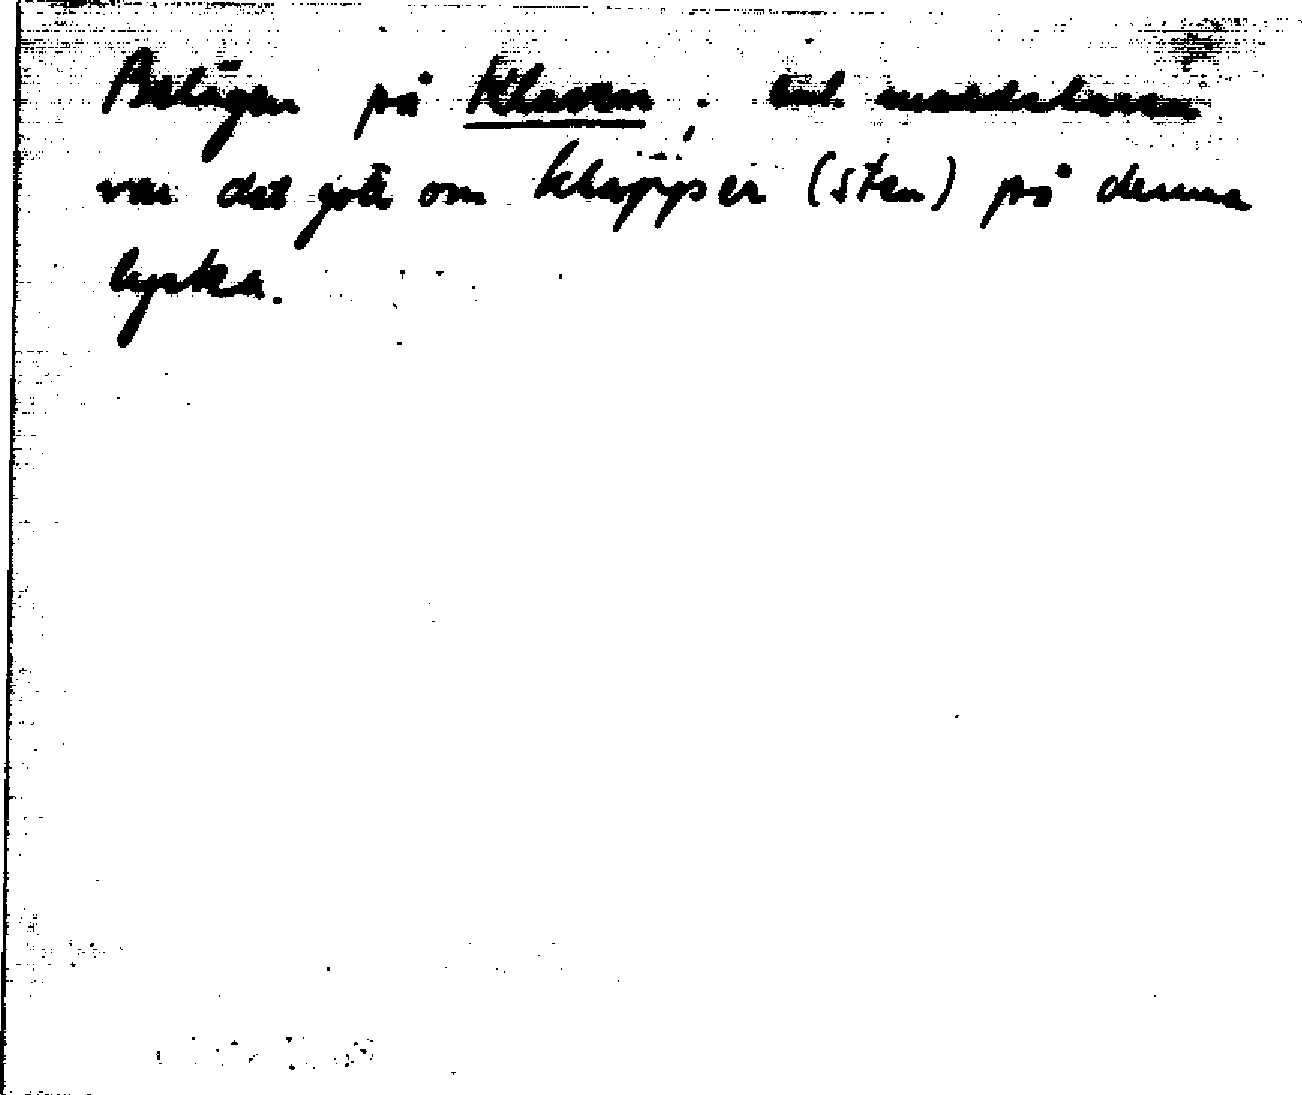 Belägen på Klaven; enl meddelaren
var det gott om klappser (sten) på denna
lycka.